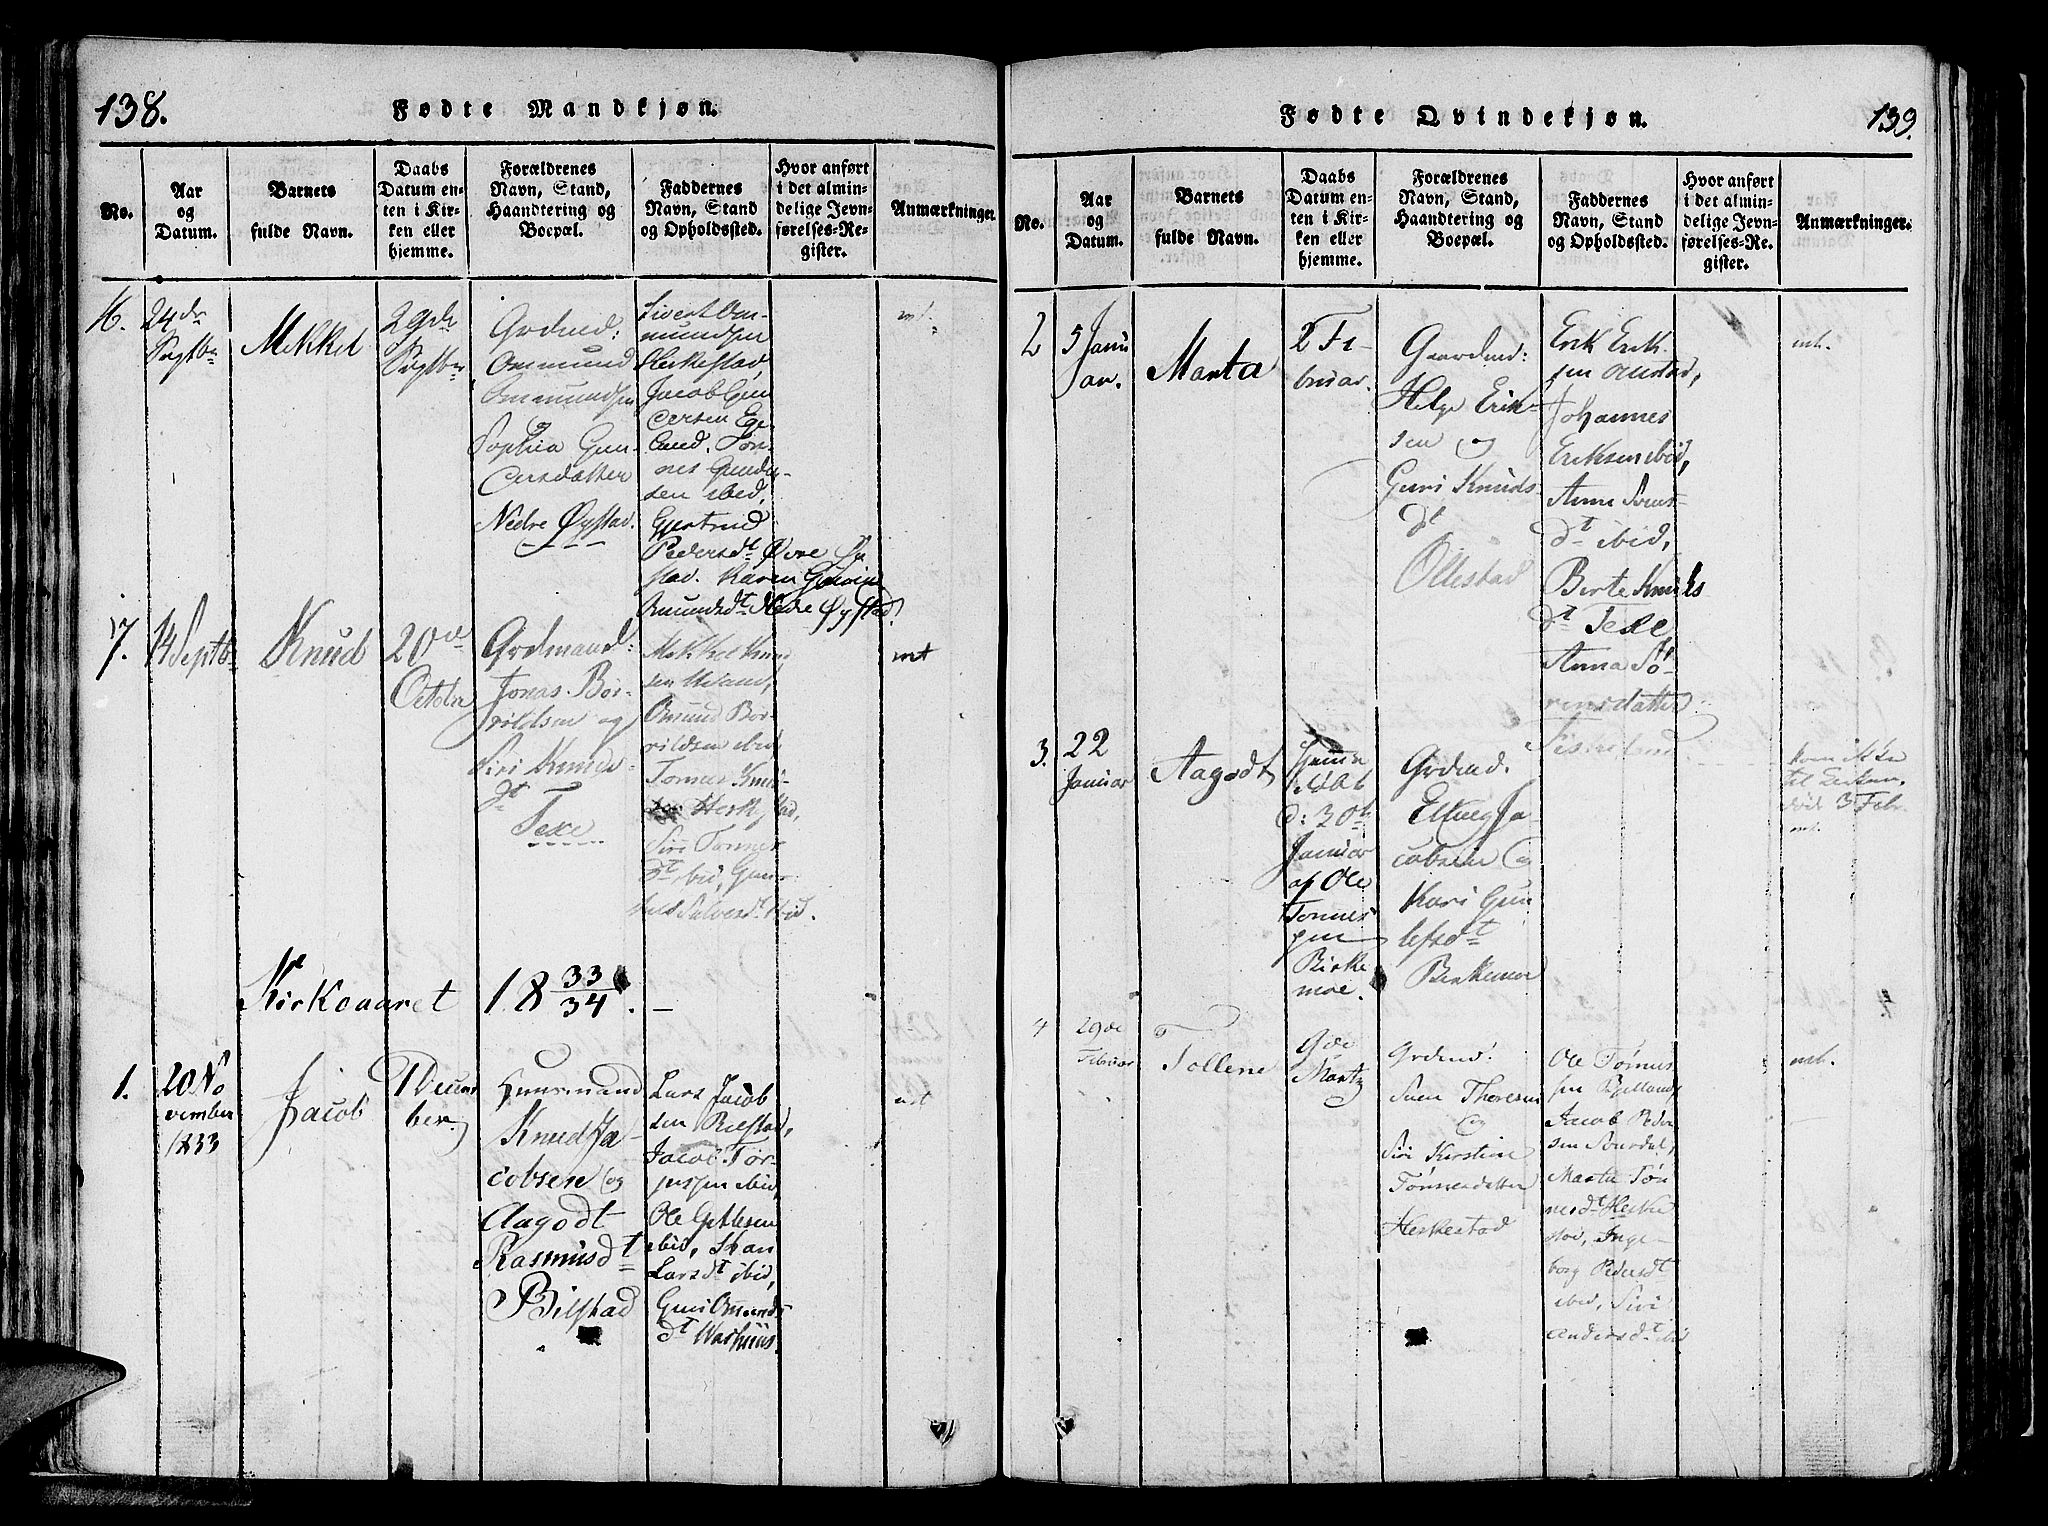 138.
Fødte Mandkjøn.
No.
Aar
og
Datum.
Barnets
fulde Navn.
Daabs
Datum en-
ten i Kir-
ken eller
hjemme.
Forældrenes
Navn, Stand,
Haandtering og
Boepæl.
Faddernes
Navn, Stand
og Opholdssted.
Hvor anført
i det almin-
delige Jevn-
førelses-Re-
gister.
Anmærkninger.
16.
24de
Septbr
Mikkel
29de
Septbr
Grdmd:
Ommund
Ommundsen
Sophia Gun-
Nedre Øystad.
Sivert Om-
mundsen
Herkestad,
Jacob Gun
Ege-
land. Ton-
nes Gunder-
sen ibid.
Gjertrud
Pedersdt Øvre Øy
stad. Karen
Omundsdt Nedre Øystad.
mt.
17.
14 Septb
Knud
20de
October
Grdmand:
Jonas Bor-
rildsen og
Siri Knuds-
dt
Texe
Mikkel Knud
sen
Omund Bor-
rildsen ibid
Tønnes Knud-
Herkestad,
Siri Tønnes
dt ibid, Gun-
hild ibid.
mt
Kirkeaaret 18 33/34. —
1.
20 No
vember
1833
Jacob
1 Decem
ber.
Huusmand
Knud Ja-
cobsen og
Aagodt
Rasmusdt
Bilstad
Lars Jacob
sen Bilstad,
Jacob Tor-
jussen ibid,
Ole Gitlesen
ibid,
Larsdt ibid,
Guri Omunds
dt Washuus.
mt
139.
Fødte Qvindekjøn.
No.
Aar
og
Datum.
Barnets
fulde Navn.
Daabs
Datum en-
ten i Kir-
ken eller
hjemme.
Forældrenes
Navn, Stand,
Haandtering og
Boepæl.
Faddernes
Navn, Stand
og Opholdssted.
Hvor anført
i det almin-
delige Jevn-
førelses-Re-
gister.
Anmærkninger.
2
5 Janu
ar.
Marta
2 Fe-
bruar.
Gaardmd:
Helge Erik-
sen og
Guri Knuds-
dt
Ollestad
Erik Erik-
sen
Johannes
Eriksen ibid,
Anne Svens-
dt ibid,
Berte Knuds
dt Texe,
Anna Sø-
rensdatter
mt.
3.
22
Januar
Aagodt
Hjemme
døbt
d: 30te
Januar
af Ole
Tønnes
sen
Birke
moe.
Grdmd.
Elling Ja-
cobsen og
Kari Gun
lefsdt
Birkemoe
kom ikke
til Kirken.
død 3 Febr.
mt.
4
29de
Februar
Tollene
9de
Martz
Grdmd:
Sven Thoresen
og
Siri Kirstine
Tønnesdatter
Herkestad
Ole Tønnes
sen Bjelland,
Jacob Peder
sen Svordal,
Marta Tøn
nesdt Herke
stad, Inge-
borg Pedersdt
ibid, Siri
Andersdt ibid
mt.